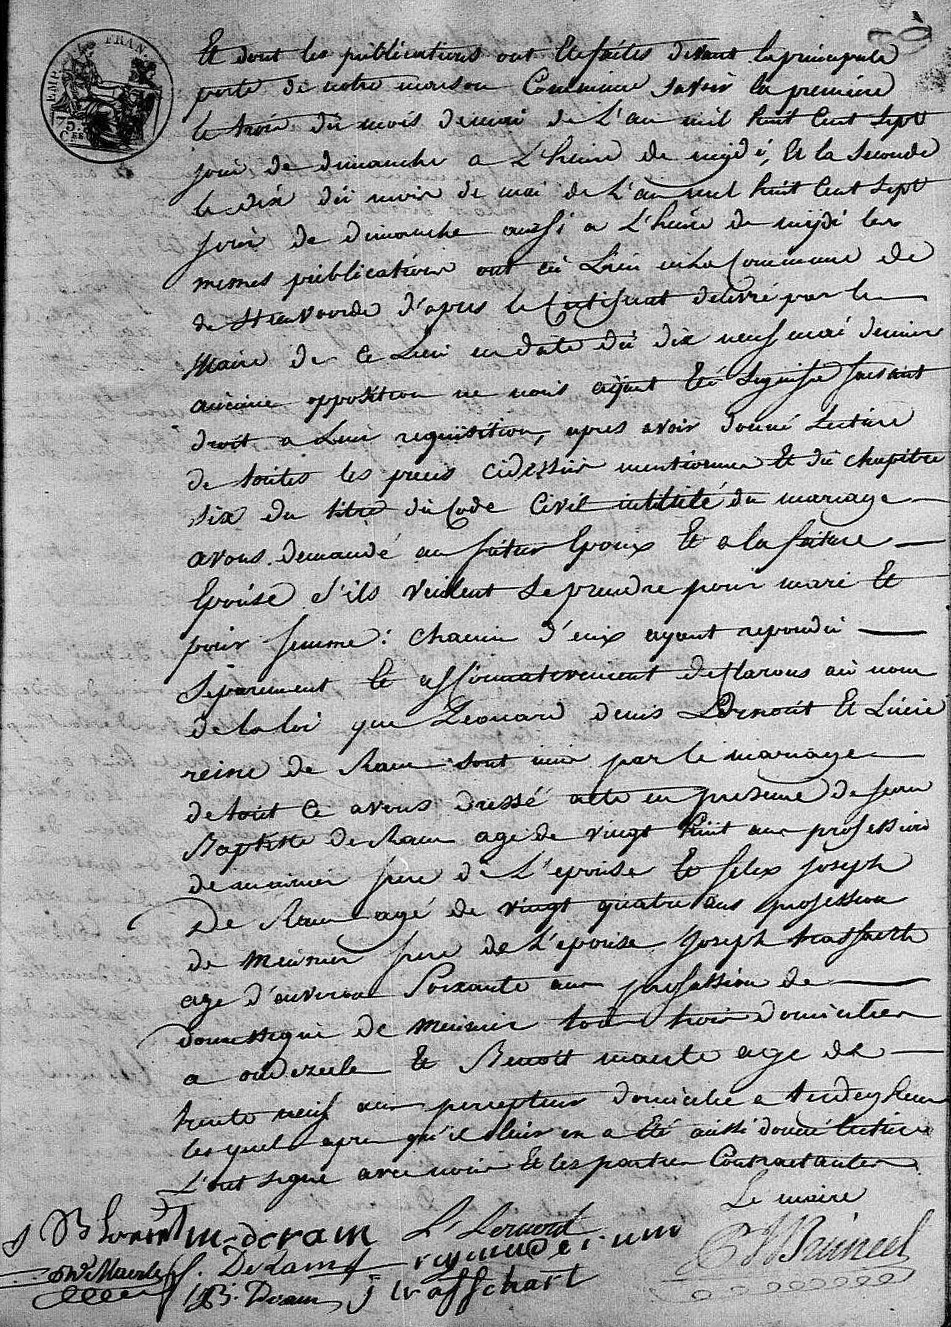 EMP. FRAN.
75
Et dont les publications ont Eté faites devant la principale
porte de notre maison Commune Savoir la premiere
le trois du mois de mai de L'an mil huit Cent Sept
jour de dimanche a L'heure de mydi, Et la Seconde
le dix du mois de mai de L'an mil huit Cent Sept
jour de dimanche aussi a L'heure de mydi les
memes publications ont eu Lieu en la Commune de
de Steenvoorde d'apres le Certificat delivré par le
Maire de Ce Lieu en date du dix neuf mai dernier
aucune opposition ne nous ayant Eté Signifié faisant
droit a Leur requisition, apres avoir donné Lecture
de toutes les pieces cidessus mentionnee Et du chapitre
six du titre du Code Civil intitulé du mariage
avons demandé au futur Epoux Et a la future
Epouse s'ils veulent Se prendre pour mari Et
pour femme : chacun d'eux ayant repondu
Separement Et affirmativement declarons au nom
de la loi que Leonard denis Lernout Et Lucie
reine de Ram sont unis par le mariage
de tout Ce avons dressé acte en presence de jean
Baptiste de Ram age de vingt huit ans profession
de meunier frere de L'epouse Et felix joseph
De Ram agé de vingt quatre ans profession
de meunier frere de L'epouse Joseph
age d'environ Soixante ans profession de
domestique de meunier tous trois domicilies
a oudezeele Et Benoit age de
trente neuf ans percepteur domicilie a
les quel apres qu'il leur en a Eté aussi donné lecture
L'ont signé avec nous Et les parties Contractantes
Le maire
L Lernout
F. DeRam
JB. Deram